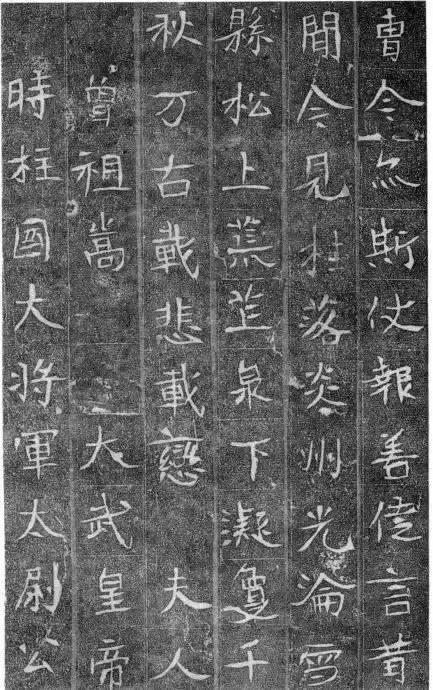 曺令尒斯仗報善言昔
聞今見桂落炎州光淪雪
縣松上荒芒泉下凝夐千
秋万古載悲載戀　夫人
曾祖嵩　大武皇帝
時柱國大將軍太尉公